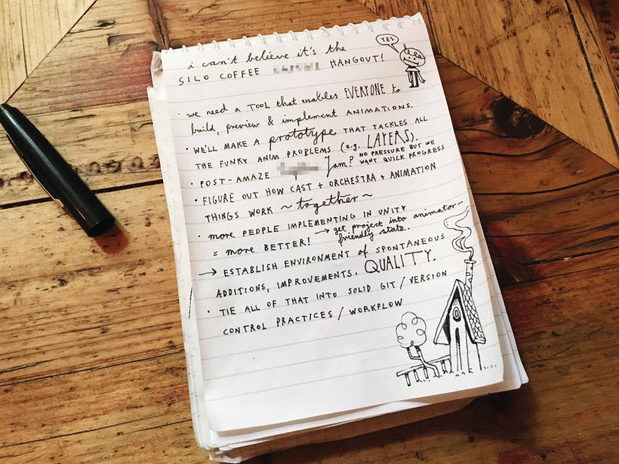 i can't believe it's the
YES
SILO COFFEE HANGOUT!
· we need a TOOL that enables EVERYONE to
build, preview & implement ANIMATIONS.
· WE'LL MAKE A prototype THAT TACKLES ALL
THE FUNKY ANIM PROBLEMS (e.g. LAYERS).
· POST-AMAZE Jam? NO PRESSURE BUT WE
WANT QUICK PROGRESS
· FIGURE OUT HOW CAST + ORCHESTRA + ANIMATION
THINGS WORK ~together~
· MORE PEOPLE IMPLEMENTING IN UNITY
= MORE BETTER! → get project into animator-
friendly state.
→ ESTABLISH ENVIRONMENT OF SPONTANEOUS
ADDITIONS, IMPROVEMENTS. QUALITY.
· TIE ALL OF THAT INTO SOLID GIT / VERSION
CONTROL PRACTICES / WORKFLOW